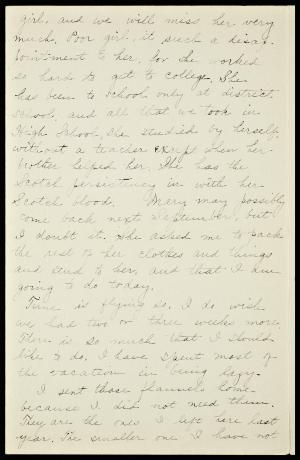 girl, and we will miss her very
much. Poor girl, it such a disap-
pointment to her, for she worked
so hard to get to college. She
has been to school only at district
school, and all that we took in
High School, she studied by herself
without a teacher except when her
brother helped her. She has the
Scotch persistency in with her
Scotch blood. Mery may possibly
come back next September, but
I doubt it. She asked me to pack
the rest of her clothes and things
and send to her, and that I am
going to do today.
Time is flying so. I do wish
we had two or three weeks more.
There is so much that I should
like to do. I have spent most of
the vacation in being lazy.
I sent those flannels home
because I did not need them.
They are the ones I left here last
year. The smaller one I have not